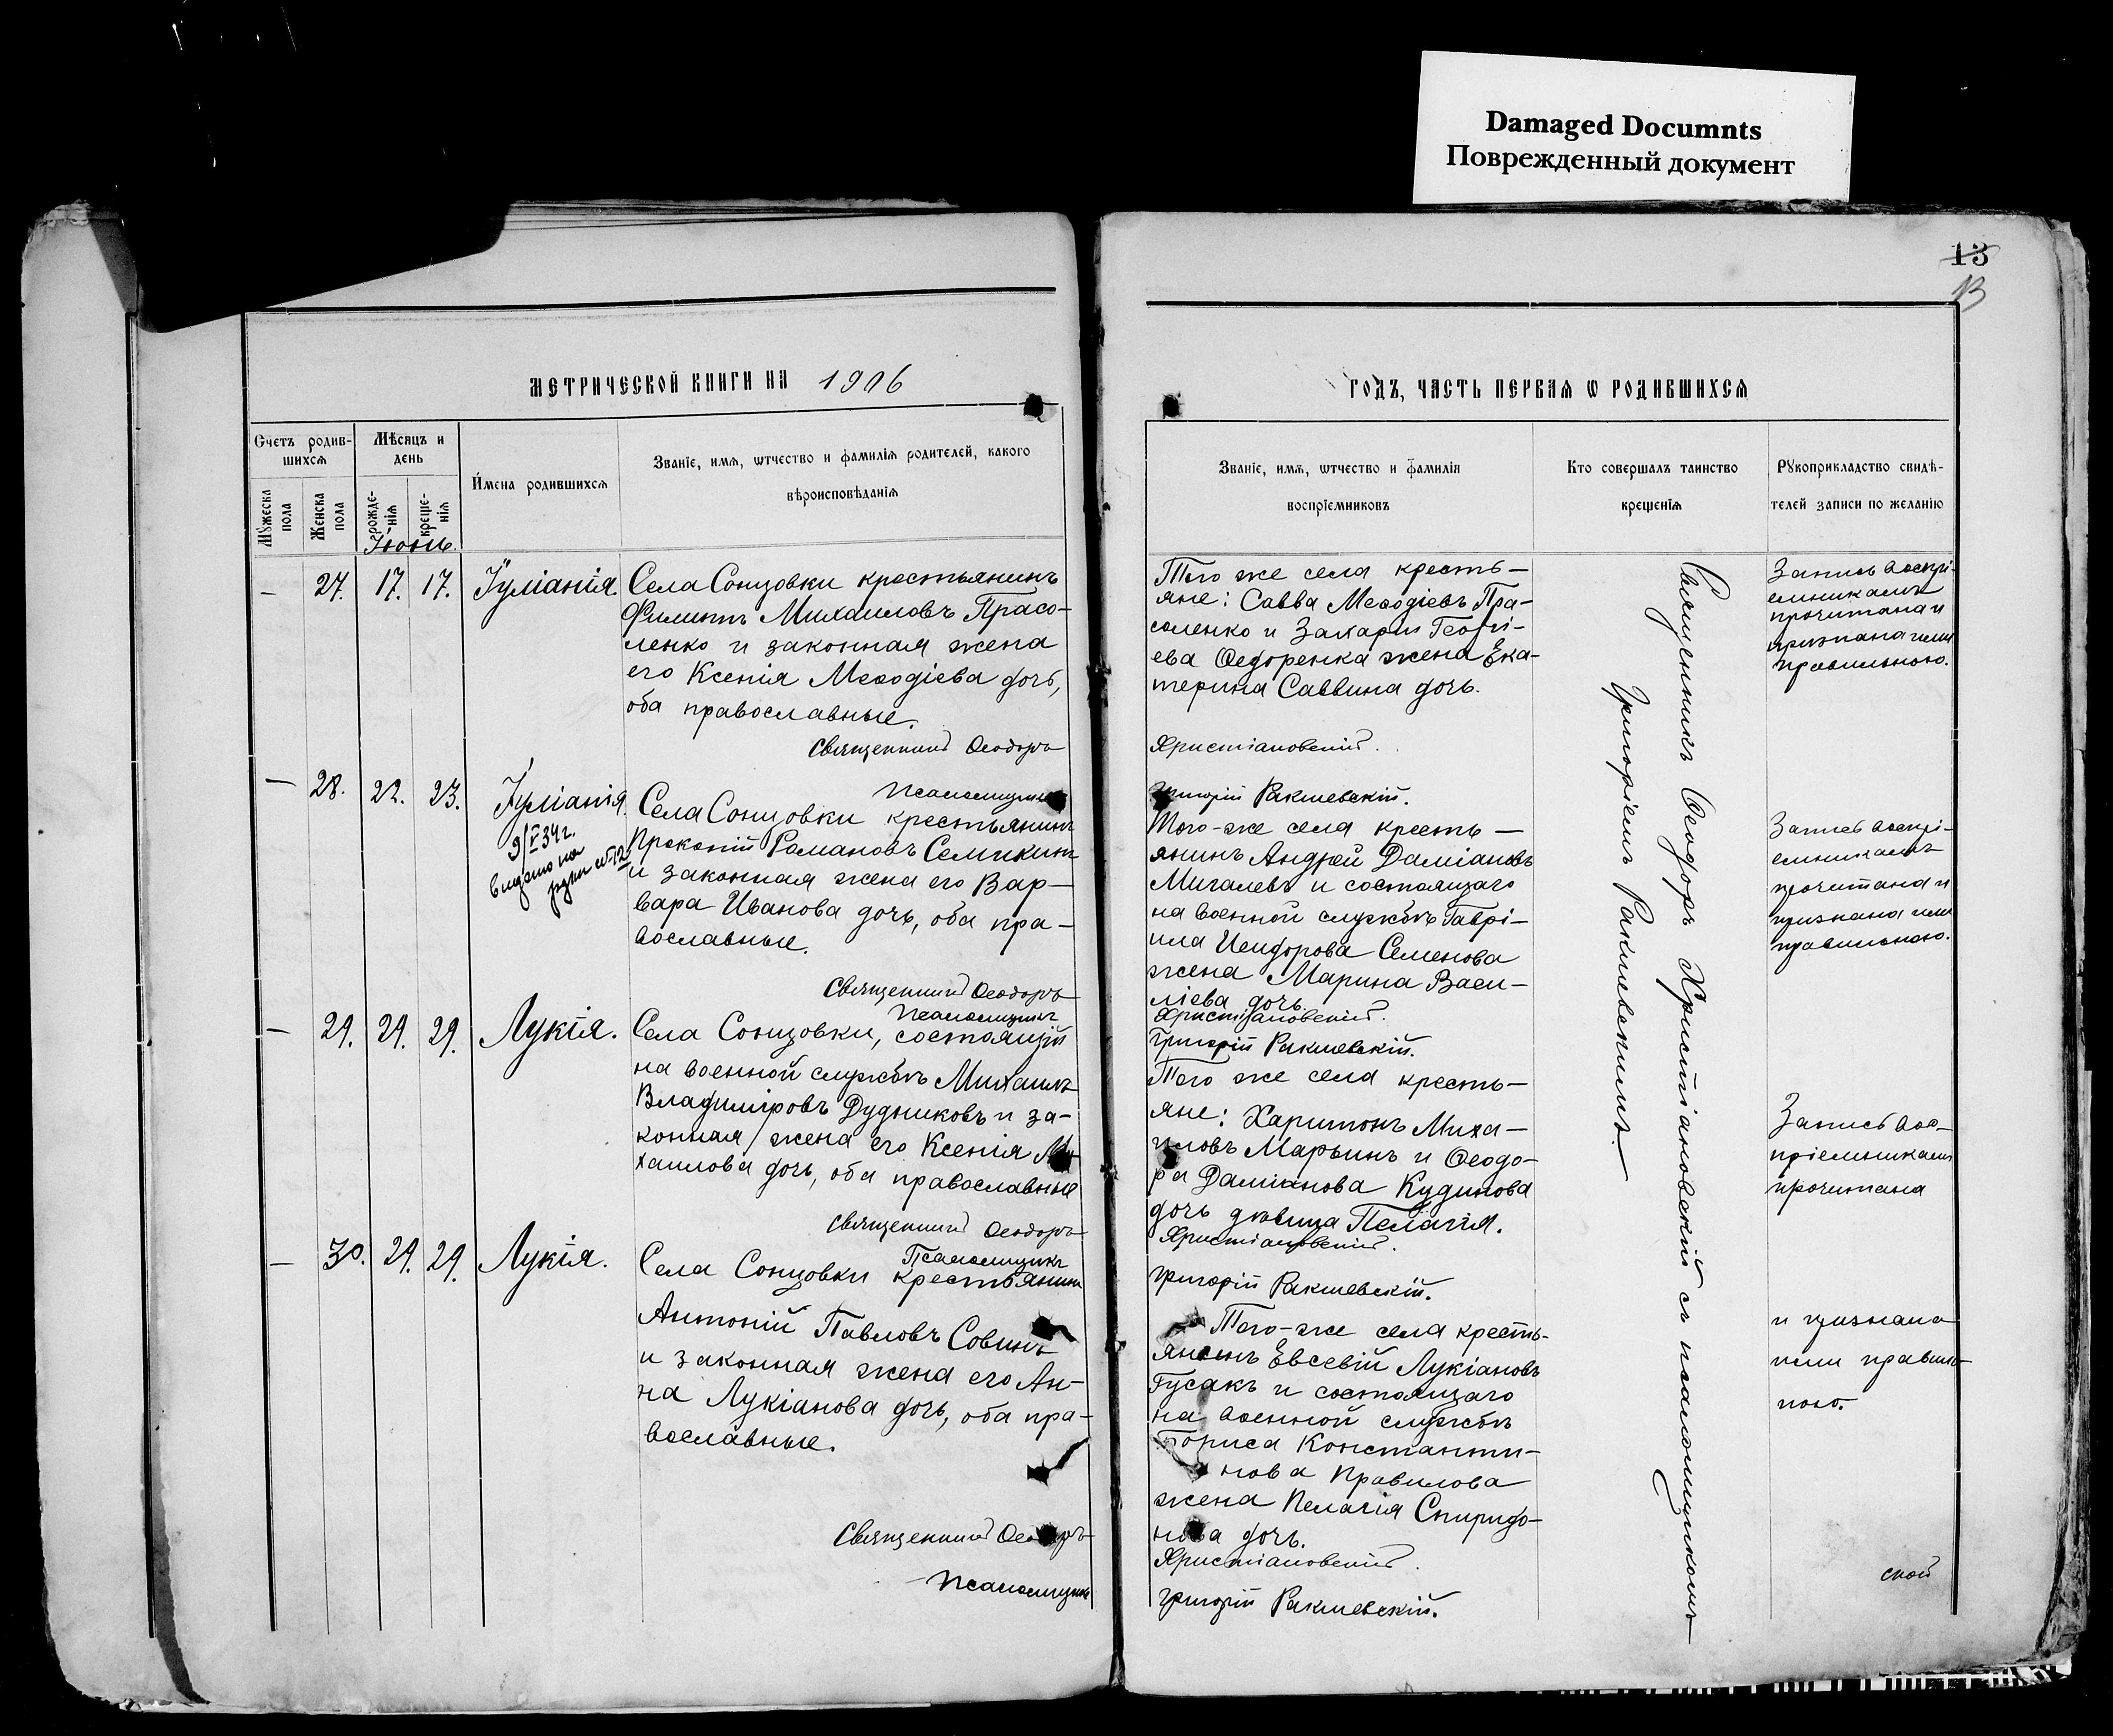 Damaged Documnts
Поврежденный документ
13
13
МЕТРИЧЕСКОЙ КНИГИ НА 1906
ГОДЪ, ЧАСТЬ ПЕРВАЯ Ѡ РОДИВШИХСЯ
Счетъ родив-
шихся
Мѣсяцъ и
день
Мужеска
пола
Женска
пола
рожде-
нія
креще-
нія
Имена родившихся
Званіе, имя, ѡтчество и фамилія родителей, какого
вѣроисповѣданія
Званіе, имя, ѡтчество и фамилія
воспріемниковъ
Кто совершалъ таинство
крещенія
Рукоприкладство свидѣ-
телей записи по желанію
Іюнь.
— 27. 17. 17. Іуліанія.
Села Сонцовки крестьянинъ
Филиппъ Михаиловъ Прасо-
ленко и законная жена
его Ксенія Меѳодіева дочь,
оба православные.
Священникъ Ѳеодоръ
Псаломщикъ
Того же села кресть-
яне: Савва Меѳодіевъ Пра-
соленко и Захарія Георгі-
ева Ѳедоренка жена Ека-
терина Саввина дочь.
Христіановскій.
Григорій Ракшевскій.
Запись воспрі-
емникамъ
прочитана и
признана ими
правильною.
— 28. 22. 23. Іуліанія.
9/V 34 г.
Села Сонцовки крестьянинъ
Прокопій Романовъ Семикинъ
и законная жена его Вар-
вара Иванова дочь, оба пра-
вославные.
Священникъ Ѳеодоръ
Псаломщикъ
Того-же села кресть-
янинъ Андрей Даміановъ
Мигалевъ и состоящаго
на военной службѣ Гаврі-
ила Исидорова Семенова
жена Марина Васи-
ліева дочь.
Христіановскій.
Григорій Ракшевскій.
Запись воспрі-
емникамъ
прочитана и
признана ими
правильною.
— 29. 29. 29. Лукія.
Села Сонцовки, состоящій
на военной службѣ Михаилъ
Владиміровъ Дудниковъ и за-
конная жена его Ксенія Ми-
хаилова дочь, оба православные
Священникъ Ѳеодоръ
Псаломщикъ
Того же села кресть-
яне: Харитонъ Миха-
иловъ Марьинъ и Ѳеодо-
ра Даміанова Кудинова
дочь дѣвица Пелагія.
Христіановскій.
Григорій Ракшевскій.
Запись вос-
пріемникамъ
прочитана
— 30. 29. 29. Лукія.
Села Сонцовки крестьянинъ
Антоній Павловъ Совинъ
и законная жена его Ан-
на Лукіанова дочь, оба пра-
вославные.
Священникъ Ѳеодоръ
Псаломщикъ
Того-же села кресть-
янинъ Евсевій Лукіановъ
Гусакъ и состоящаго
на военной службѣ
Бориса Константи-
нова Правилова
жена Пелагія Спиридо-
нова дочь.
Христіановскій.
Григорій Ракшевскій.
и признана
ими правиль-
ною.
Священникъ Ѳеодоръ Христіановскій съ псаломщикомъ
Григоріемъ Ракшевскимъ
ской